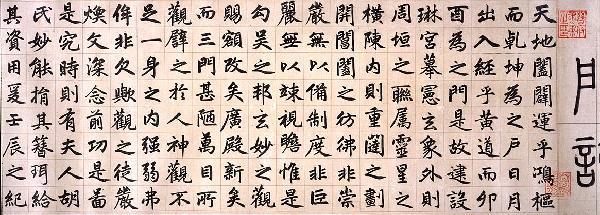 天地闔闢運乎鴻樞
而乹坤為之戶日月
出入經乎黃道而卯
酉為之門是故建設
琳宮摹憲玄象外則
周垣之聯屬靈星之
橫陳內則重闥之劃
開閶闔之彷彿非崇
嚴無以備制度非巨
麗無以竦視瞻惟是
勾吳之邦玄妙之觀
賜額改矣廣殿新矣
而三門甚陋萬目
觀譬之於人神觀不
足一身之內强弱弗
侔非久歟觀之徒嚴
煥文深念前功是啚
是究時則有夫人胡
氏妙能捐其簪珥給
其資用爰壬辰之紀